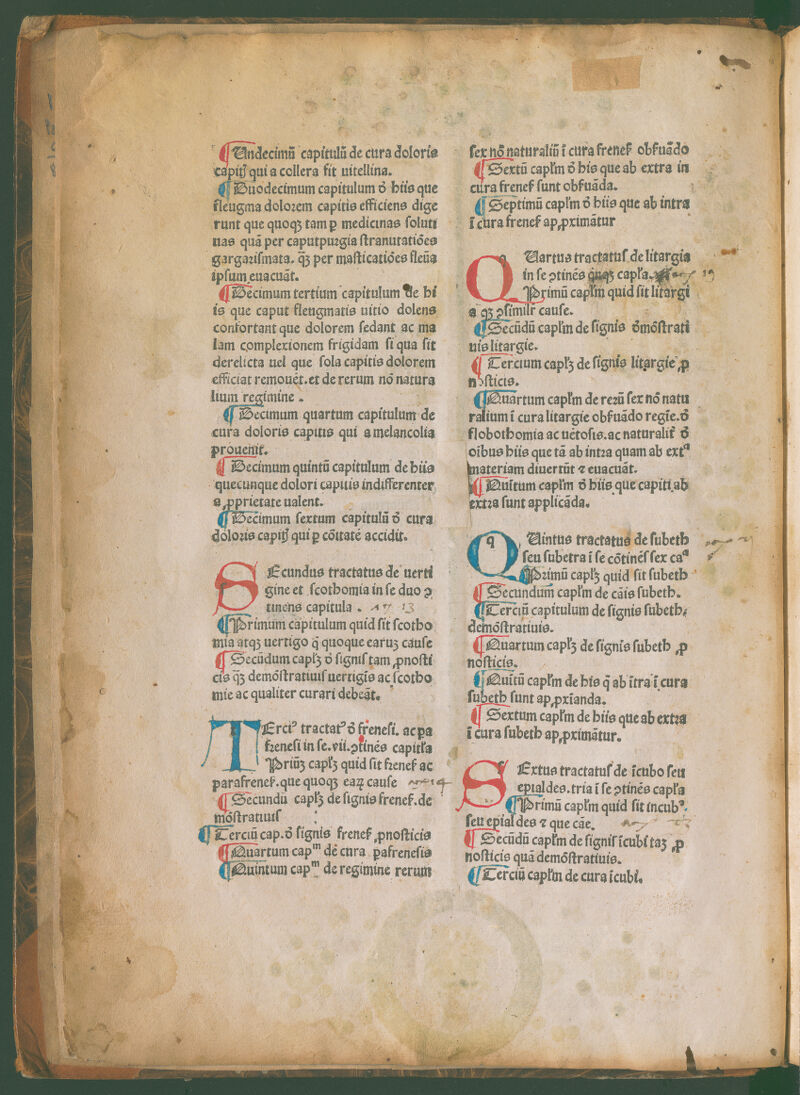 ¶ Undecimū capitulū de cura doloris
capitꝭ qui a collera fit uitellina.
¶ Duodecimum capitulum ō hiis que
fleugma dolorem capitis efficiens dige
runt que quoqꝫ tam ꝑ medicinas soluti
uas quā per caputpurgia stranutatiōes
gargarismata. qꝫ per masticatiōes fleūa
ipsum euacuāt.
¶ Decimum tertium capitulum de hi
is que caput fleugmatis uitio dolens
confortant que dolorem sedant ac ma
lam complexionem frigidam si qua sit
derelicta uel que sola capitis dolorem
efficiat remouēt. et de rerum nō natura
lium regimine .
¶ Decimum quartum capitulum de
cura doloris capitis qui a melancolia
prouenit.
¶ Decimum quintū capitulum de hiis
quecunque dolori capitis indifferenter
a ꝓprietate ualent.
¶ Decimum sextum capitulū ō cura
doloris capitꝭ qui ꝑ cōītatē accidit.
SEcundus tractatus de uerti
gine et scothomia in se duo ↄ
tinens capitula . 13
¶ Primum capitulum quid sit scotho
mia atqꝫ uertigo q̄ quoque earuꝫ cause
¶ Secūdum caplꝫ ō signis tam ꝓnosti
cis qꝫ demōstratiuis uertigis ac scotho
mie ac qualiter curari debeāt.
TErciꝰ tractatꝰ ō frenesi. ac pa
frenesi in se .vii. ↄtinēs capitl'a
Priūꝫ caplꝫ quid sit frenes' ac
parafrenes'. que quoqꝫ eaꝝ cause 14
¶ Secundū caplꝫ de signis frenes'. de
mōstratiuis
¶ Terciū cap. ō signis frenes' ꝓnosticis
¶ Quartum capᵐ de cura pafrenesis
¶ Quintum capᵐ de regimine rerum
sex nō naturaliū ī cura frenes' obsuādo
¶ Sextū capl'm ō his que ab extra in
cura frenes' sunt obsuāda.
¶ Septimū capl'm ō hiis que ab intra
ī cura frenes' apꝓximātur
QUartus tractatus de litargia
in se ↄtinēs capl'a. 19
Primū capl'm quid sit litargi
a qꝫ ↄsimilr' cause.
¶ Secūdū capl'm de signis ōmōstrati
uis litargie.
¶ Tercium caplꝫ de signis litargie ꝓ
nosticis.
¶ Quartum capl'm de rezū sex nō natu
ralium ī cura litargie obsuādo regīe. ō
flobothomia ac uētosis. ac naturalit' ō
oībus hiis que tā ab intra quam ab extᵃ
materiam diuertūt ⁊ euacuāt.
¶ Quītum capl'm ō hiis que capiti ab
extra sunt applicāda.
QUintus tractatus de subeth
seu subetra ī se cōtinēs sex caᵃ
¶ Primū caplꝫ quid sit subeth
¶ Secundum capl'm de cāis subeth.
¶ Terciū capitulum de signis subeth
demōstratiuis.
¶ Quartum caplꝫ de signis subeth ꝓ
nosticis.
¶ Quītū capl'm de his q̄ ab ītra ī cura
subeth sunt apꝓxīanda.
¶ Sextum capl'm de hiis que ab extra
ī cura subeth apꝓximātur.
SExtus tractatus de īcubo seu
epialdes. tria ī se ↄtinēs capl'a
¶ Primū capl'm quid sit incubꝰ.
seu epialdes ⁊ que cāe.
¶ Secūdū capl'm de signis īcubi taꝫ ꝓ
nosticis quā demōstratiuis.
¶ Terciū capl'm de cura īcubi.